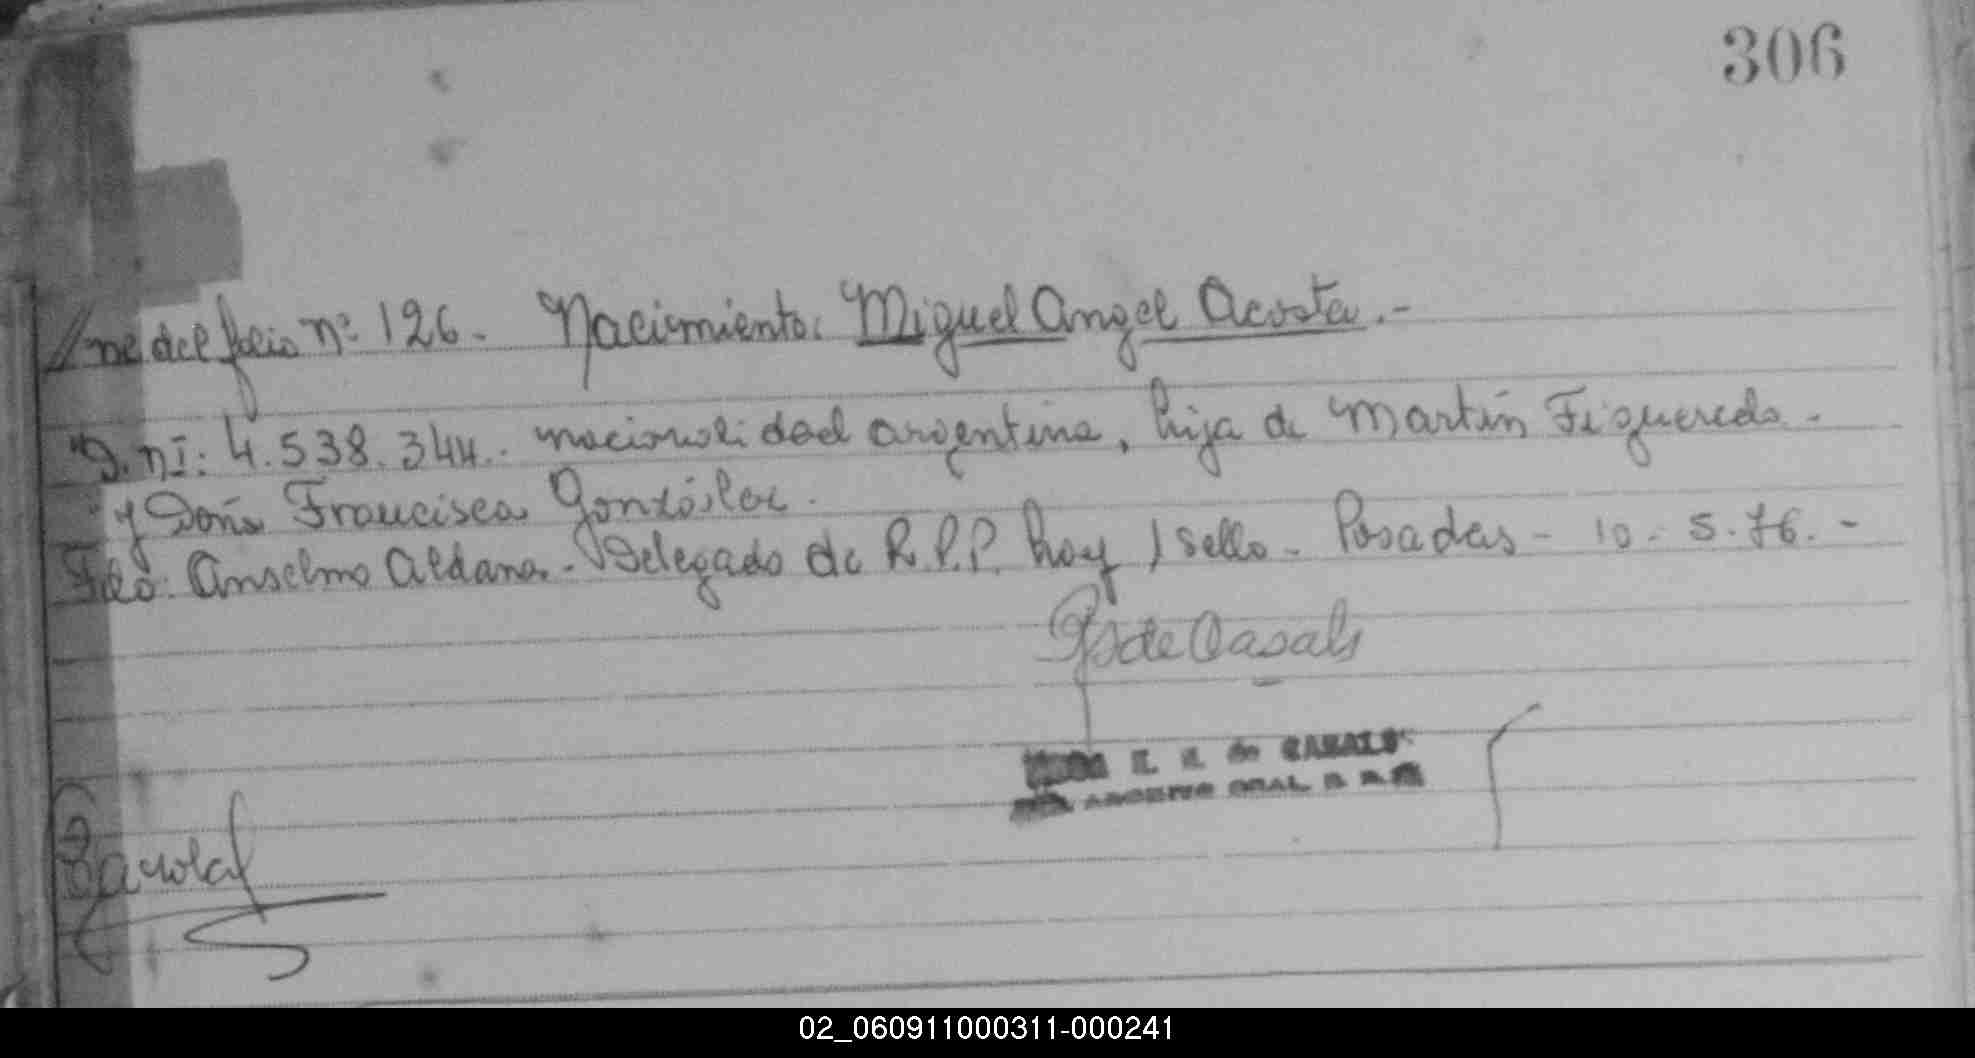 306
//ne del folio nº 126. Nacimiento: Miguel Angel Acosta.-
D.nI: 4.538.344.. nacionalidad argentina, hija de Martín Figueredo.-
y Doña Francisca González.
Fdo: Anselmo Aldana.- Delegado de R.P.P. hay 1 sello- Posadas- 10-5.76.-
de Casals
E. de CASALS
ARCHIVO GRAL.
02_060911000311-000241